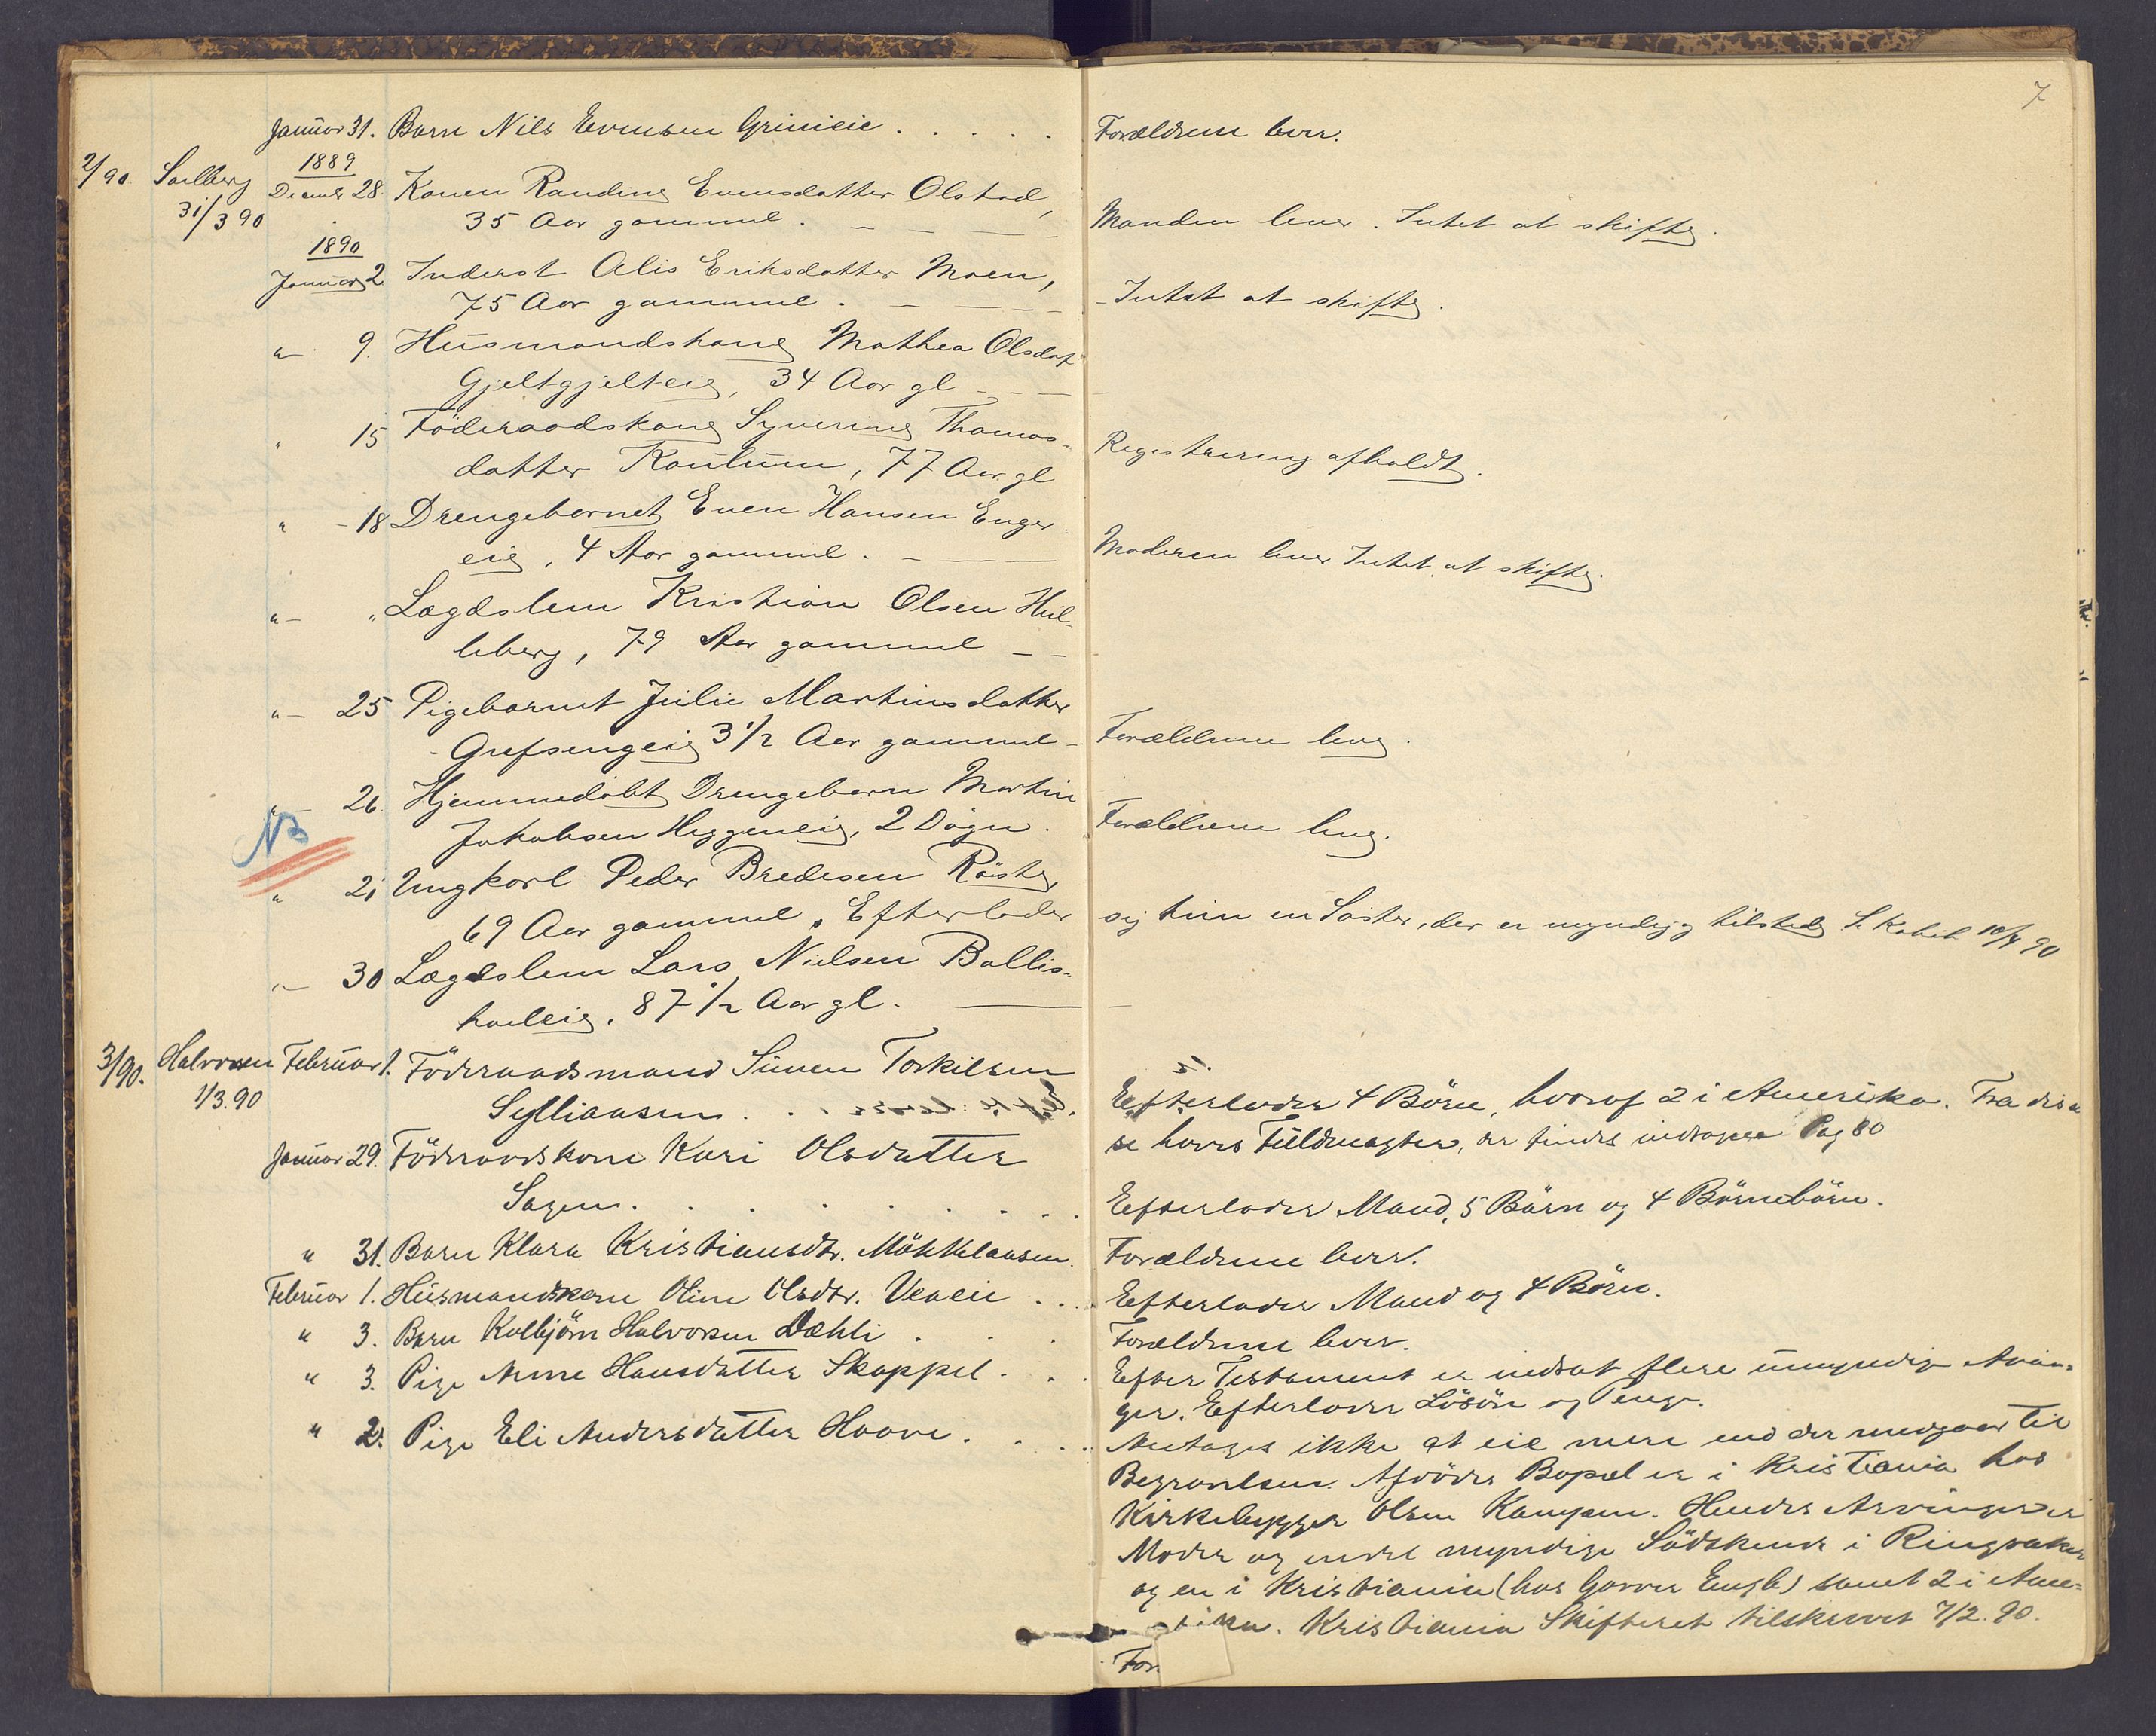 7
Januar 31. Barn Nils Evensen Grimeie . . . . . Forældrene lever.
2/90. Saelberg 1889
31/3 90 Decemb 28. Konen Randine Evensdatter Olstad,
35 Aar gammel. — — Manden lever. Intet at skifte.
1890
Januar 2 Inderst Alis Eriksdatter Moen,
75 Aar gammel. — — Intet at skifte.
" 9. Husmandskone Mathea Olsdat
Gjeltgjelteie, 34 Aar gl — —
" 15 Föderaadskone Syverine Thomas-
datter Rautum, 77 Aar gl Registrering afholdt.
" - 18 Drengebarnet Even Hansen Enger-
eie, 4 Aar gammel. — — Moderen lever Intet at skifte.
" — " Lægdslem Kristian Olsen Hul-
leberg, 79 Aar gammel — —
" — 25 Pigebarnet Julie Martinsdatter
Grefsengeie 3 1/2 Aar gammel — Forældrene leve.
" — 26. Hjemmedöbt Drengebarn Martin
NB
Jakobsen Heggeneie, 2 Dögn. Forældrene leve.
" 21 Ungkarl Peder Bredesen Röste,
69 Aar gammel, Efterlader sig kun en Söster, der er myndig tilstede S. Kabik 10/4 90
" — 30 Lægdslem Lars Nielsen Ballis-
houleie. 87 1/2 Aar gl. —
3/90. Halvorsen Februar 1. Föderaadsmand Simen Torkilsen
1/3.90 Sylliaasen . . . Efterlader 4 Börn, hvoraf 2 i Amerika. Fra dis-
se haves Fuldmagter, der findes indtagen Pag 80
Januar 29. Föderaadskone Kari Olsdatter
Sagen. . . . . . . . Efterlader Mand, 5 Börn og 4 Börnebörn.
" 31. Barn Klara Kristiansdtr. Mökkelaasen. Forældrene lever.
Februar 1. Husmandskone Oline Olsdtr. Veaeie . . . Efterlader Mand og 4 Börn.
" 3. Barn Kolbjörn Halvorsen Dæhli . . . Forældrene lever.
" 3. Pige Anne Hansdatter Skappel . . . Efter Testament er indsat flere umyndige Arvin-
ger. Efterlader Lösöre og Penge.
" 2. Pige Eli Andersdatter Hoove. . . . . Antages ikke at eie mere end der medgaar til
Begravelsen. Afdödes Bopæl er i Kristiania hos
Kirkebygger Olsen Kampen. Hendes Arvinger er
Moder og endel myndige Södskende i Ringsaker
og en i Kristiania (hos Garver Engh) samt 2 i Ame-
rika. Kristiania Skifteret tilskrevet 7/2.90.
For